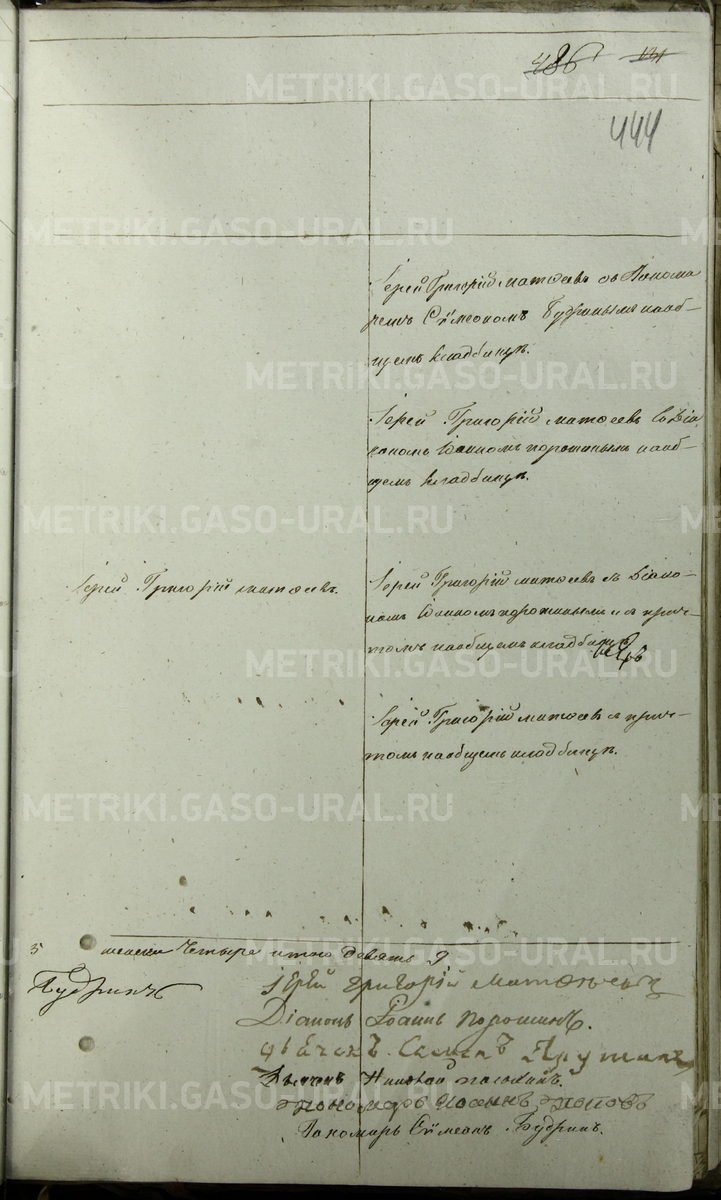 486 131
444
Іерей Григорій Матѳеевъ съ Понома
ремъ Сѷмеономъ Будринымъ наоб-
щемъ кладбищѣ.
Іерей Григорій Матѳеевъ съ Діа
кономъ Іоанномъ порошинымъ наоб-
щемъ кладбищѣ.
Іерей Григорій матѳеевъ.
Іерей Григорій матѳеевъ съ Діако-
номъ Іоанномъ порошинымъ и с прич-
томъ наобщемъ кладбищѣ
Іерей Григорій матѳеевъ с прич-
томъ наобщемъ кладбищѣ.
5 женска Четыре итого девять 9
Будринъ
Іерей Григорій Матѳеевъ
Діаконъ Іоаннъ Порошинъ.
дьячекъ
Дьячекъ Николай
пономарь Иоаннъ Поповъ
Пономарь Сѷмеонъ Будринъ.
METRIKI.GASO-URAL.RU